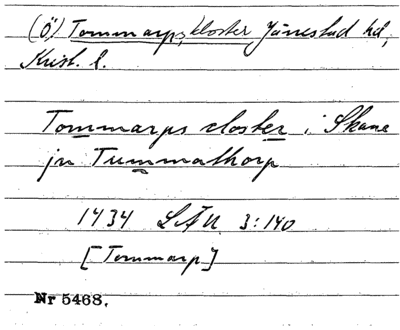 (Ö) Tommarps kloster Järrestad hd,
Krist. l.
Tommarps closter i Skane
jn Tummathorp
1434 SÄU 3:140
[Tommarp]
Nr 5468.